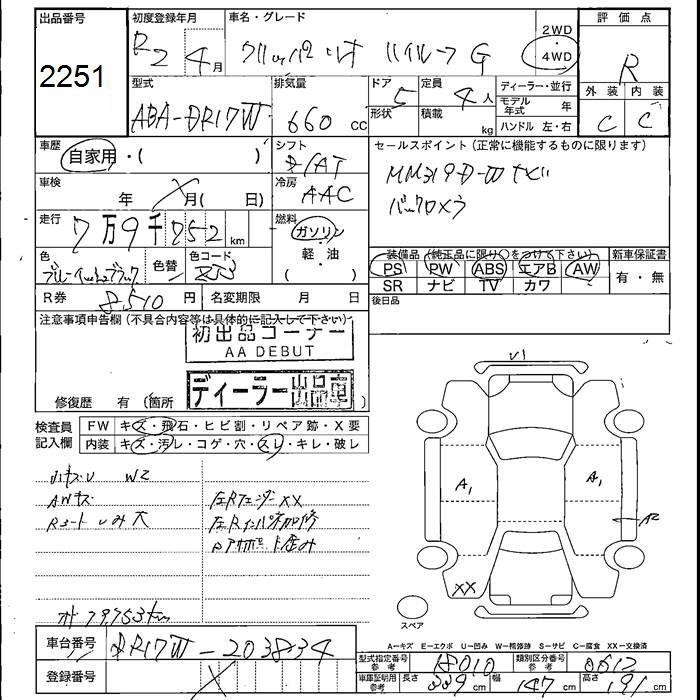 出品番号
2251
初度登録年月
R2 4月
車名・グレード
クリッパーリオ ハイルーフ G
2WD
4WD
評価点
R
外装 内装
C C
型式
ABA-DR17W
排気量
660 cc
ドア
形状
5
定員
4人
積載
kg
ディーラー・並行
モデル年式 年
ハンドル 左・右
車歴
自家用・( )
シフト
D/AT
セールスポイント(正常に機能するものに限ります)
MM319D-W ナビ
バックカメラ
車検
年 月( 日)
冷房
AAC
走行
7万9千752km
燃料
ガソリン
軽・油
( )
色
ブルーイッシュブラック
色替
色コード
ZJ3
装備品(純正品に限り○をつけて下さい)
PS PW ABS エアB AW
SR ナビ TV カワ
新車保証書
有・無
R券 8510円
名変期限 月 日
後日品
注意事項申告欄(不具合内容等は具体的に記入して下さい)
初出品コーナー
AA DEBUT
ディーラー出品車
修復歴 有(箇所 )
検査員
記入欄
FW キズ・飛石・ヒビ割・リペア跡・X要
内装 キズ・汚レ・コゲ・穴・スレ・キレ・破レ
小キズU W2
AWキズ
Rコートしみ大
左RフェンダーXX
左Rインパネ加修
Rアサポート歪み
オド79753km
U1
A1
A1
A2
XX
スペア
A-キズ E-エクボ U-凹み W-補修跡 S-サビ C-腐食 XX-交換済
車台番号
DR17W-203834
登録番号
型式指定番号
参考
18010
類別区分番号
参考
0612
車庫証明用
参考
長さ 339cm 幅 147cm 高さ 191cm